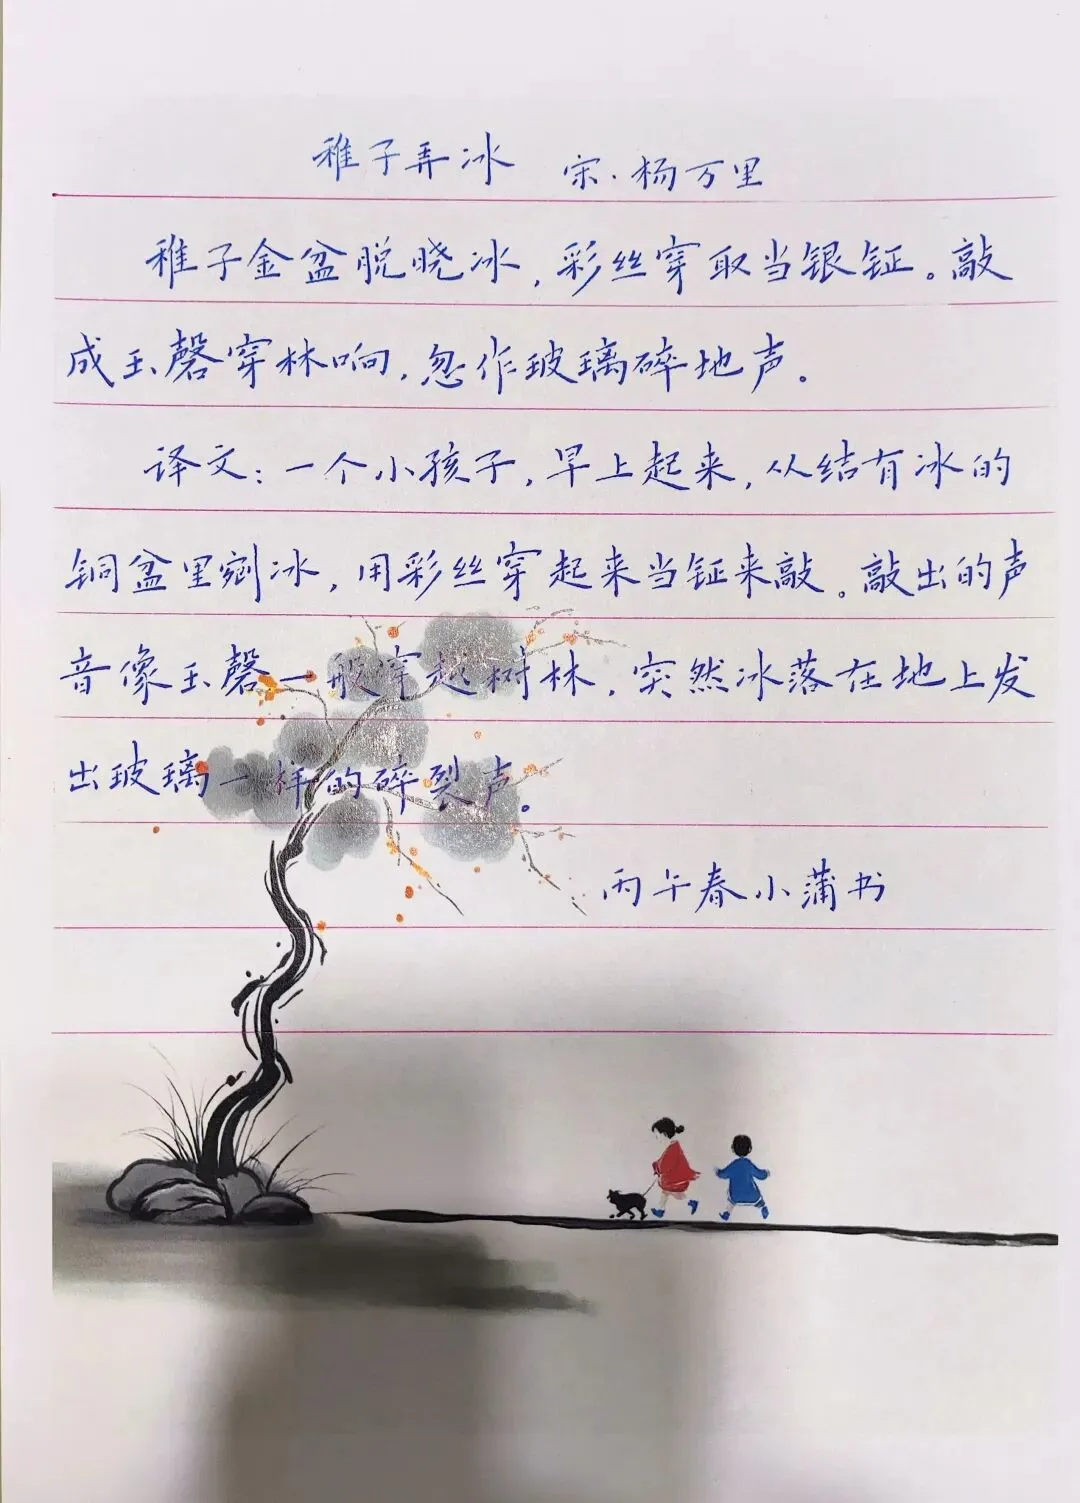 稚子弄冰 宋·杨万里
稚子金盆脱晓冰，彩丝穿取当银钲。敲
成玉磬穿林响，忽作玻璃碎地声。
译文：一个小孩子，早上起来，从结有冰的
铜盆里剜冰，用彩丝穿起来当钲来敲。敲出的声
音像玉磬一般穿越树林，突然冰落在地上发
出玻璃一样的碎裂声。
丙午春小蒲书